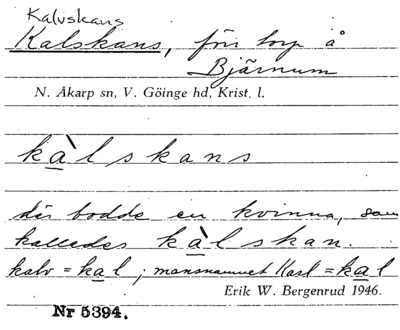 Kalvskans
Kalskans, förr torp å
Bjärnum
N. Åkarp sn, V. Göinge hd, Krist. l.
kàlskans
där bodde en kvinna, som
kallades kàlskan.
kalv = kal; mansnamnet Karl = kal
Erik W. Bergenrud 1946.
Nr 5394.